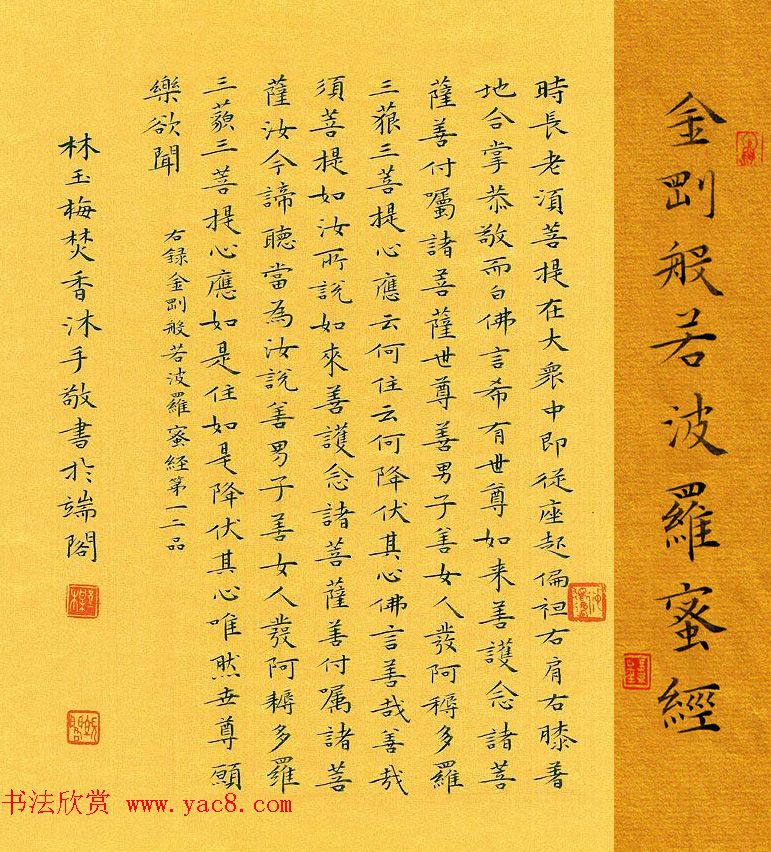 金剛般若波羅蜜經
時長老須菩提在大衆中即從座起偏袒右肩右膝着
地合掌恭敬而白佛言希有世尊如来善護念諸菩
薩善付囑諸菩薩世尊善男子善女人發阿耨多羅
三藐三菩提心應云何住云何降伏其心佛言善哉善哉
須菩提如汝所說如來善護念諸菩薩善付囑諸菩
薩汝今諦聽當為汝說善男子善女人發阿耨多羅
三藐三菩提心應如是住如是降伏其心唯然世尊願
樂欲聞
右錄金剛般若波羅蜜經第一二品
林玉梅焚香沐手敬書於端閣
书法欣赏 www.yac8.com